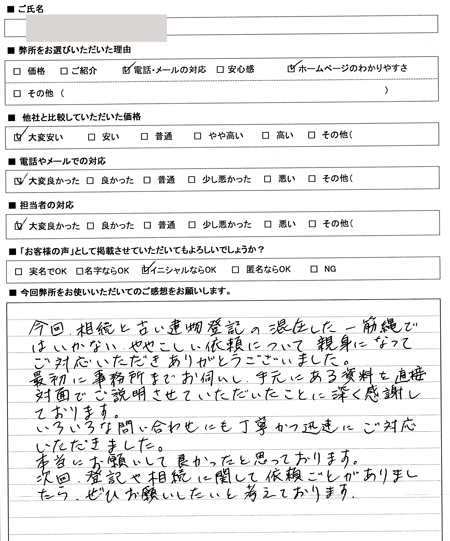 ■ ご氏名
■ 弊所をお選びいただいた理由
□ 価格 □ ご紹介 ☑ 電話・メールの対応 □ 安心感 ☑ ホームページのわかりやすさ
□ その他 ( )
■ 他社と比較していただいた価格
☑ 大変安い □ 安い □ 普通 □ やや高い □ 高い □ その他(
■ 電話やメールでの対応
☑ 大変良かった □ 良かった □ 普通 □ 少し悪かった □ 悪い □ その他(
■ 担当者の対応
☑ 大変良かった □ 良かった □ 普通 □ 少し悪かった □ 悪い □ その他(
■ 「お客様の声」として掲載させていただいてもよろしいでしょうか？
□ 実名でOK □ 名字ならOK ☑ イニシャルならOK □ 匿名ならOK □ NG
■ 今回弊所をお使いいただいてのご感想をお願いします。
今回、相続と古い建物登記の混在した一筋縄で
はいかない、ややこしい依頼について親身になって
ご対応いただきありがとうございました。
最初に事務所までお伺いし、手元にある資料を直接
対面でご説明させていただいたことに深く感謝し
ております。
いろいろな問い合わせにも丁寧かつ迅速にご対応
いただきました。
本当にお願いして良かったと思っております。
次回、登記や相続に関して依頼ごとがありまし
たら、ぜひお願いしたいと考えております。